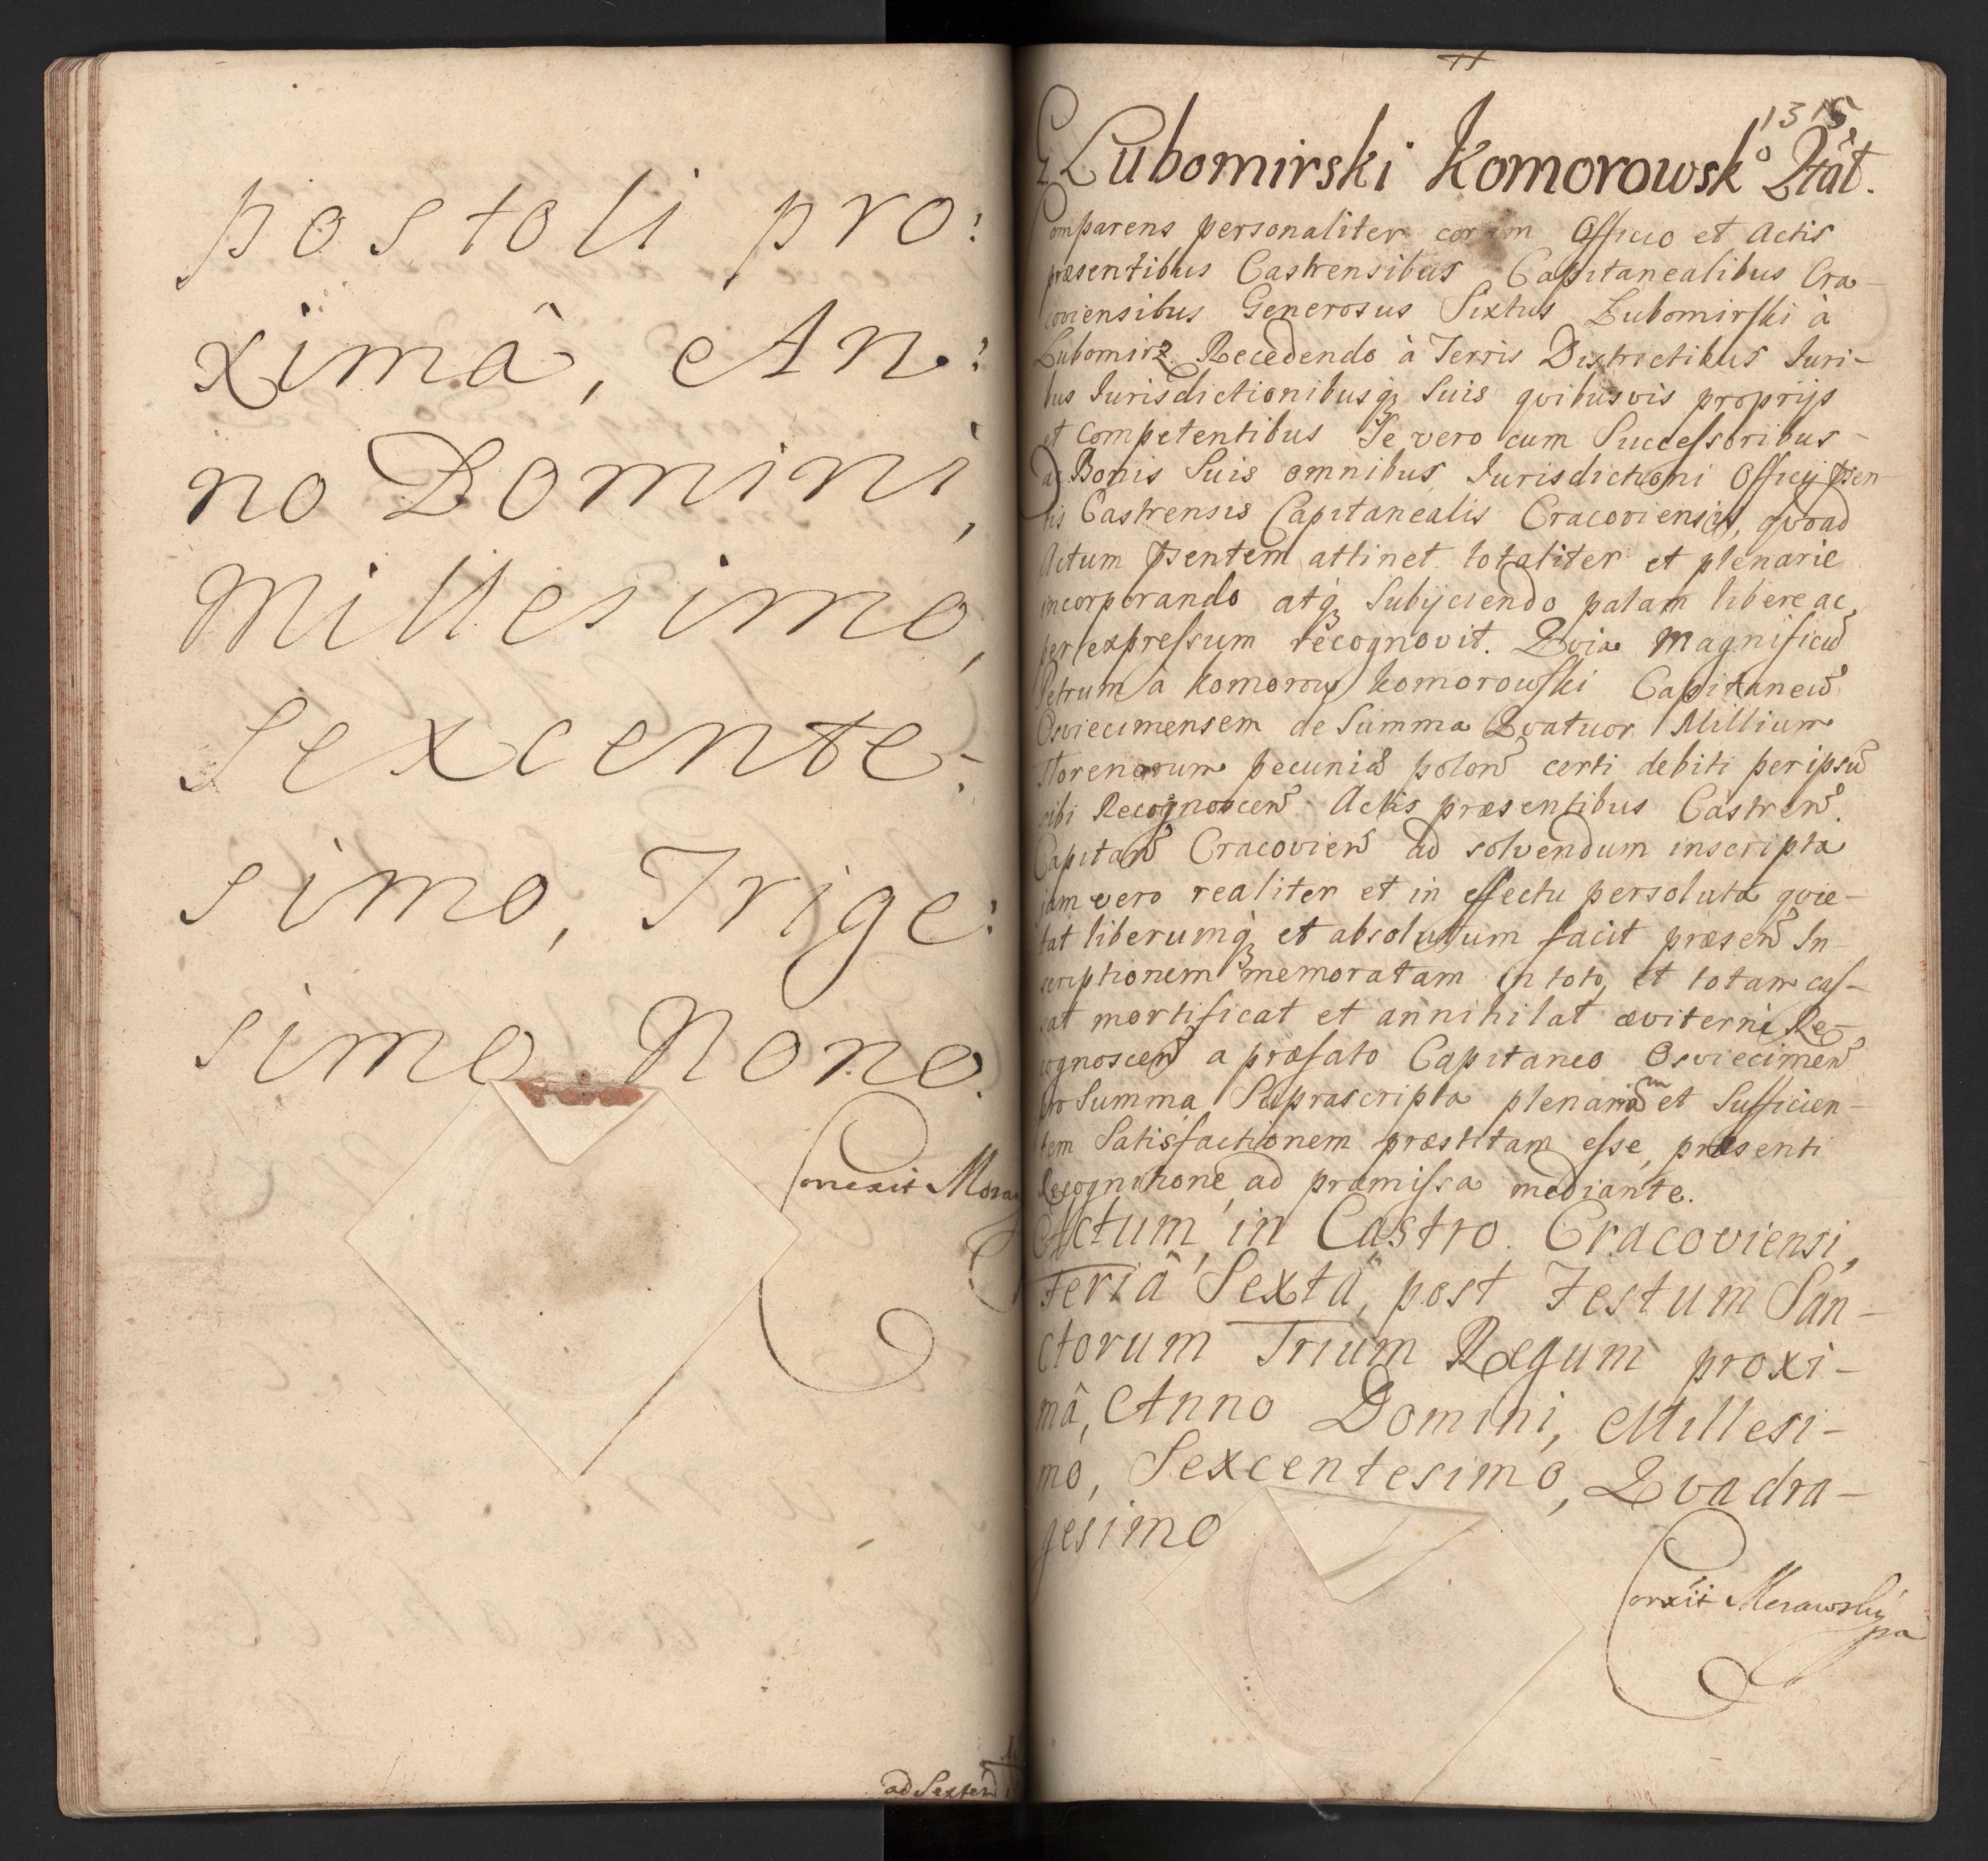 postoli pro:
ximâ, An:
no Domini,
Millesimo,
Sexcente:
simo, Trige:
simo Nono.
Correxit
ad Sexter
1315
G Lubomirski Komorowsko Qtat.
Comparens personaliter coram Officio et Actis
præsentibus Castrensibus Capitanealibus Cra-
coviensibus Generosus Sixtus Lubomirski à
Lubomirz Recedendo à Terris Districtibus Iuri-
bus Iurisdictionibusq3 Suis qvibusvis proprijs
et competentibus Se vero cum Successoribus -
ac Bonis Suis omnibus Iurisdictioni Officij psen-
tis Castrensis Capitanealis Cracoviensis, qvoad
Actum psentem attinet totaliter et plenarie
incorporando atq3 Subijciendo palam libere ac
per expressum recognovit. Qvia Magnificū
Petrum à Komorow Komorowski Capitaneū
Osviecimensem de Summa Qvatuor Millium
Florenorum pecuniæ polon certi debiti per ipsū
sibi Recognoscen Actis præsentibus Castren.
Capitan Cracovien ad solvendum inscripta
jam vero realiter et in effectu persoluta qvie-
tat liberumq3 et absolutum facit præsen In-
scriptionem memoratam in toto, et totam cas-
sat mortificat et annihilat æviternè Re-
cognoscen a præfato Capitaneo Osviecimen
pro Summa Suprascripta plenariam et Sufficien-
tem Satisfactionem præstitam esse, præsenti
Recognitione ad præmissa mediante.
Actum in Castro Cracoviensi,
Feriâ Sextâ, post Festum San-
ctorum Trium Regum proxi-
mâ, Anno Domini, Millesi-
mo, Sexcentesimo, Qvadra-
gesimo
Correxit Morawsky